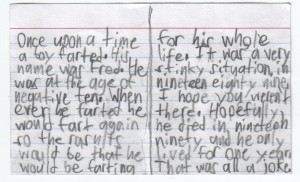 Once upon a time
a boy farted. His
name was Fred. He
was at the age of
negative ten. when
ever he farted he
would fart again
so the rasults
would be that he
would be farting
for his whole
life. It was a very
stinky situation, in
nineteen eighty nine,
I hope you weren't
there. Hopefully
he died in, nineteen
ninety and he only
lived for one year.
That was all a joke.